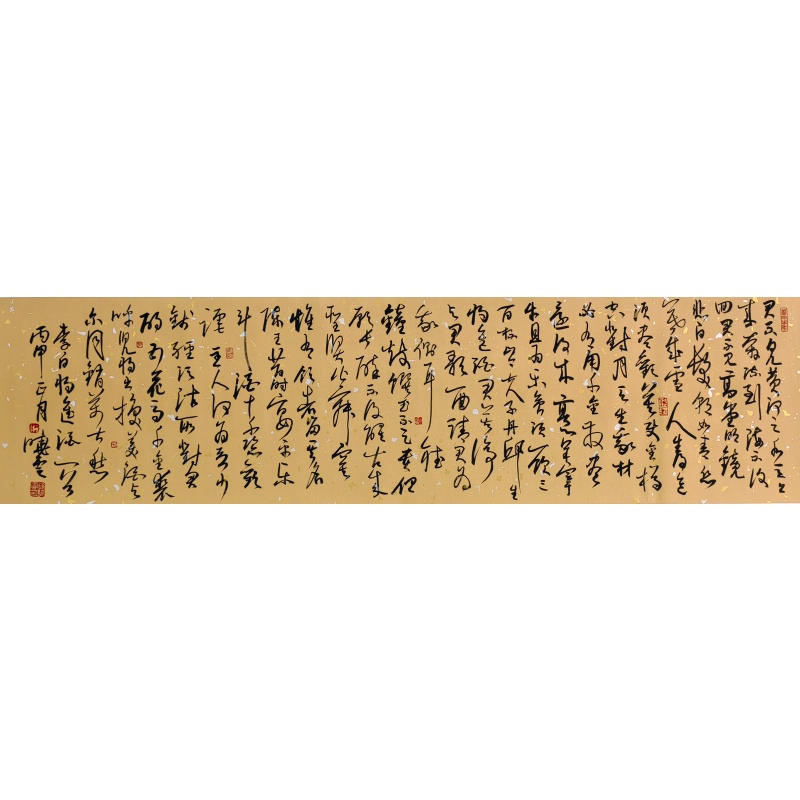 君不見黃河之水天上
來奔流到海不復
回君不見高堂明鏡
悲白髮朝如青絲
暮成雪人生得意
須盡歡莫使金樽
空對月天生我材
必有用千金散盡
還復來烹羊宰
牛且為樂會須一飲三
百杯岑夫子丹邱生
將進酒君莫停
與君歌一曲請君為
我側耳聽
鐘鼓饌玉不足貴但
願長醉不復醒古來
聖賢皆寂寞
惟有飲者留其名
陳王昔時宴平樂
斗酒十千恣歡
謔主人何為言少
錢徑須沽取對君
酌五花馬千金裘
呼兒將出換美酒與
爾同銷萬古愁
李白將進酒一首
丙申正月